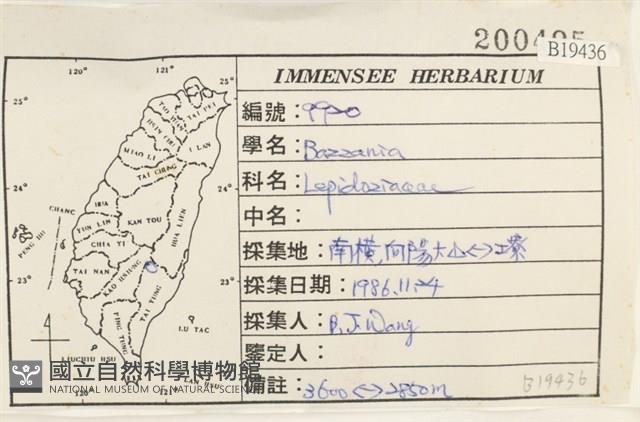 B19436
IMMENSEE HERBARIUM
編號：
學名：Bazzania
科名：Lepidoziaceae
中名：
採集地：南橫,向陽大山<->工寮
採集日期：1986.11.4
採集人：B.J.Wang
鑒定人：
備註：3600<->2850m
B19436
120°
121°
25°
25°
TAI PEI
I LAN
MIAO LI
TAI CHUNG
24°
24°
CHANG
HUA
PENG HU
YUN LIN
KAN TOU
HUA LIEN
CHIA YI
TAI NAN
KAO HSIUNG
23°
23°
TAI TUNG
PING TUNG
LU TAC
LIUCHIU HSU
LAN HSU
120°
121°
國立自然科學博物館
NATIONAL MUSEUM OF NATURAL SCIENCE